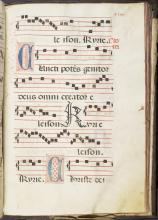 le ison. Kyrie.
Cuncti potēs genitor
deus omni creator e
Kyrie
leison.
Kyrie. Christe dei